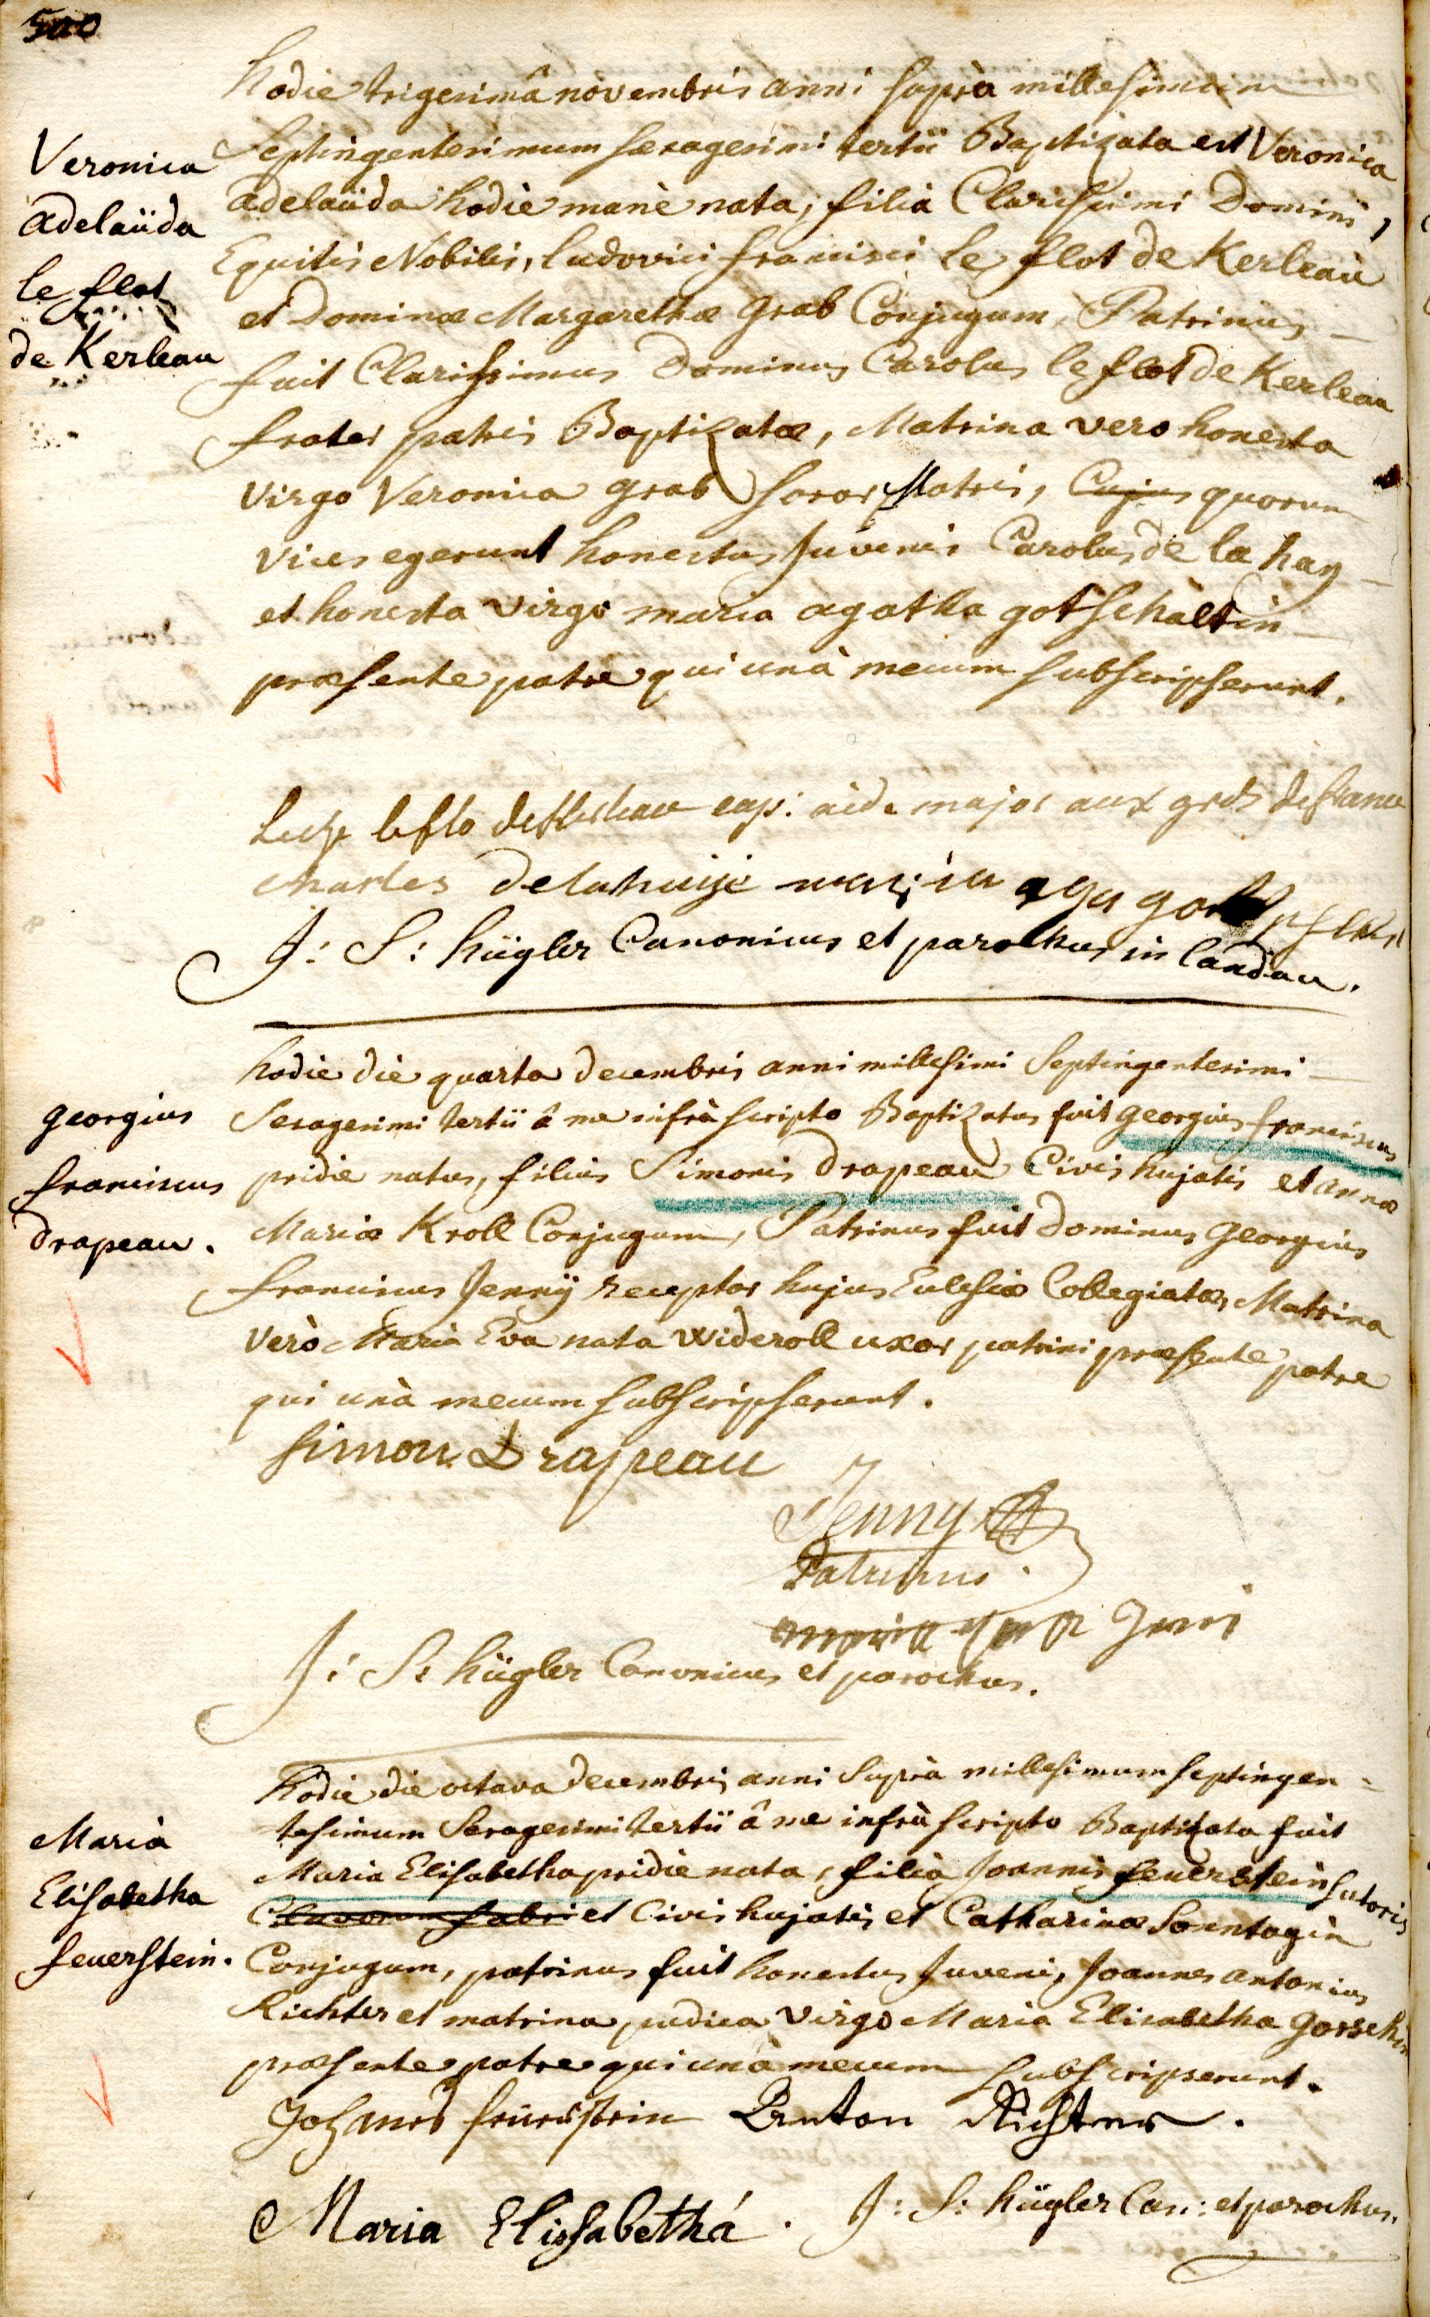 500
Veronica
Adelaüda
le flot
de Kerleau
hodie trigesimâ novembris anni suprà millesimum
Septingentesimum sexagesimi tertii Baptizata est Veronica
Adelaüda hodiè manè nata, filia Clarissimi Domini,
Equitis Nobilis, ludovici francisci le flot de Kerleau
et Dominæ Margarethæ Grab Conjugum, Patrinus
fuit Clarissimus Dominus Carolus le flot de Kerleau
frater patris Baptizatæ, Matrina vero honesta
virgo Veronica grab soror Matris, Cujus quorum
vices egerunt honestus Juvenis Carolus de la hay
et honesta virgo maria agatha gotschaltin
præsente patre qui unà mecum subscripserunt.
leflo de Kerleau cap: aide major aux grds de france
charles delahaije maria aga
J: S: hügler Canonicus et parochus in landau.
georgius
franciscus
drapeau.
hodie die quarta decembris anni millesimi Septingentesimi
Sexagesimi tertii â me infrà scripto Baptizatus fuit georgius franciscus
pridie natus, filius Simonis drapeau Civis hujatis et annæ
Mariæ Kroll Conjugum, Patrinus fuit dominus Georgius
franciscus Jennÿ receptor hujus Eclesiæ Collegiatæ, Matrina
verò Maria Eva nata wideroll uxor patrini præsente patre
qui unà mecum subscripserunt.
simon Drapeau
Jenny
Patrinus.
J: S: hügler Canonicus et parochus.
Maria
Elisabetha
feuerstein.
hodie die octava decembris anni Suprà millesimum septingen-
tesimum Sexagesimi tertii â me infrà scripto Baptizata fuit
Maria Elisabetha pridie nata, filia Joannis feuerstein sutoris
Clavorum fabri et Civis hujatis et Catharinæ Sonntagin
Conjugum, patrinus fuit honestus Juvenis Joannes antonius
Richter et matrina pudica virgo Maria Elisabetha
præsente patre qui unà mecum subscripserunt.
Johannes feuerstein Anton Richter.
Maria Elissabethá. J: S: hügler Can: et parochus.